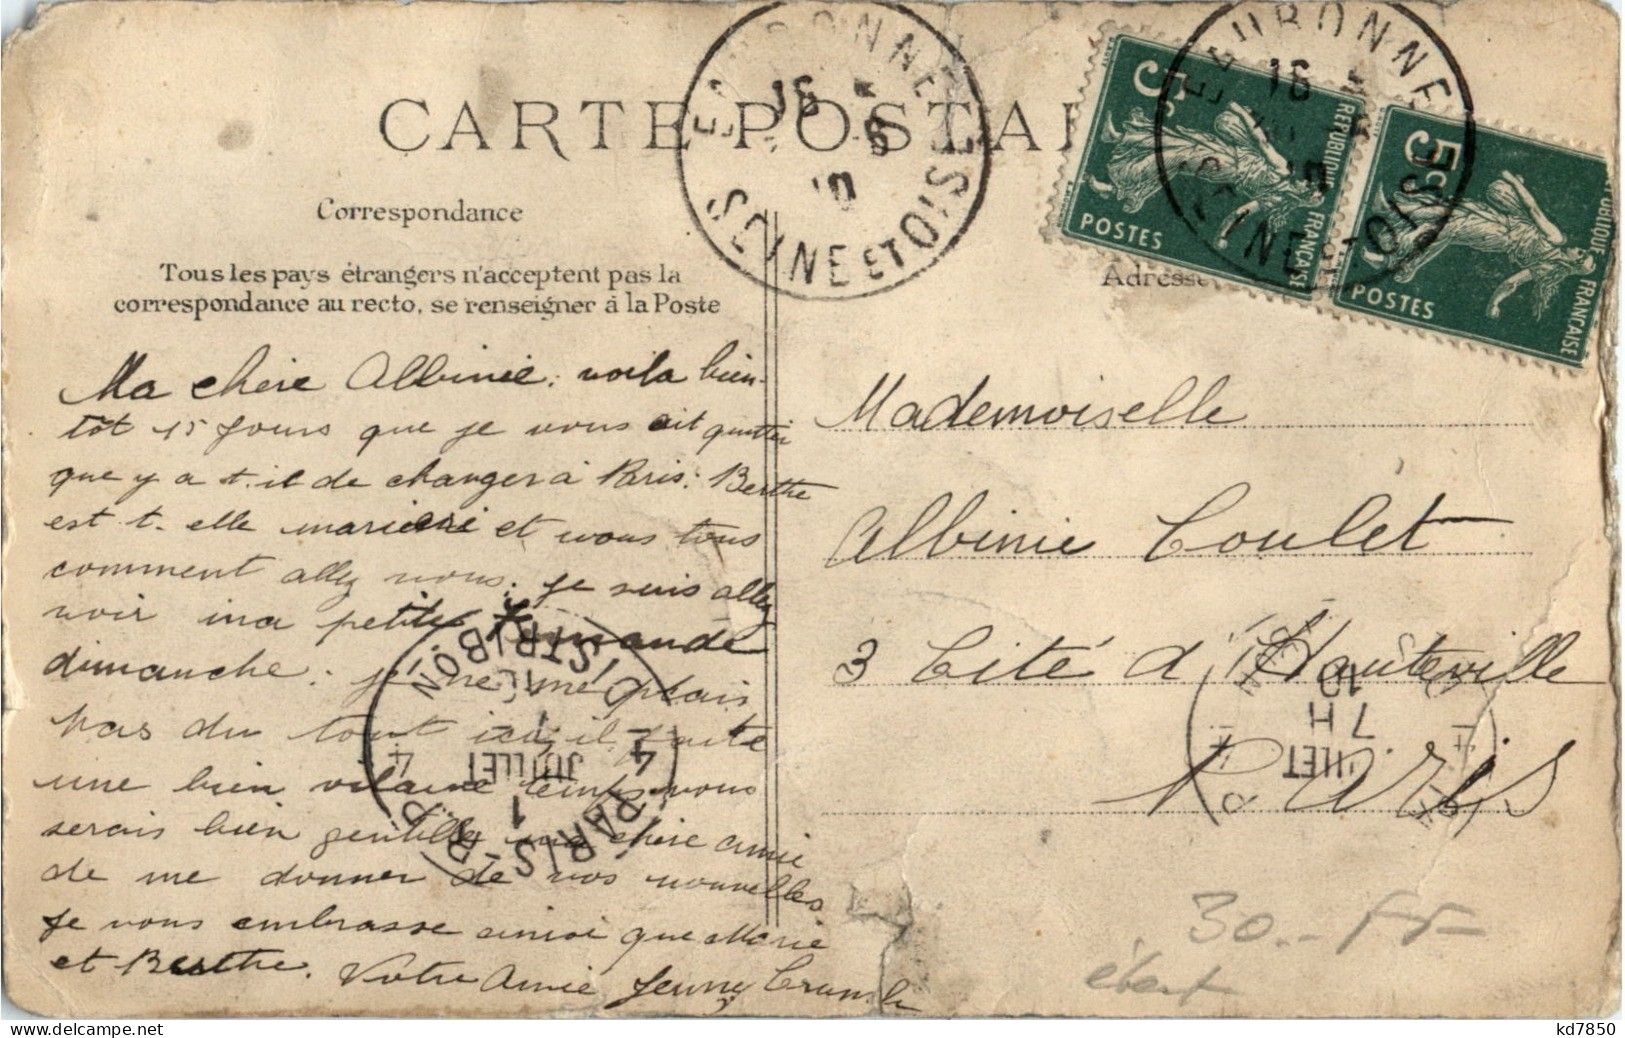 CARTE POSTALE
Correspondance
Tous les pays étrangers n'acceptent pas la
correspondance au recto, se renseigner à la Poste
Adresse
5c
POSTES
REPUBLIQUE FRANÇAISE
5c
POSTES
REPUBLIQUE FRANÇAISE
16
SEINE ET OISE
16
SEINE ET OISE
Ma chère Albinie: voila bien-
tôt 15 jours que je vous ait quitter
que y a t. il de changer à Paris: Berthe
est t- elle et vous tous
comment allez vous. je suis allez
voir ma petite
dimanche: je ne me plais
pas du tout ici, il faite
une bien vilaine temps vous
serais bien gentille ma chère amie
de me donner de vos nouvelles
Je vous embrasse ainsi que Marie
et Berthe. Votre Amie Jenny
Mademoiselle
Albinie Coulet
3 Cité d'Hauteville
Paris
PARIS
DISTRIBON
4 4
1
JUILLET
7H
30.- FF-
kd7850